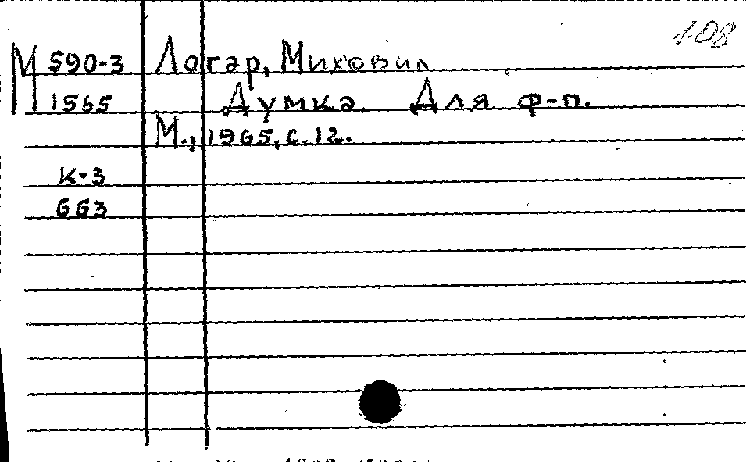 108
М 590-3 Логар, Миховил
1565 Думка. Для ф-п.
М., 1965, с. 12.
К-3
663